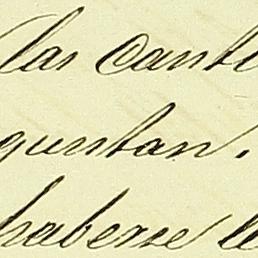 las canti
quntan.
haberse le